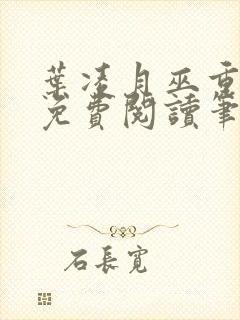 葉凌月巫重
免費閱讀筆
石長寬